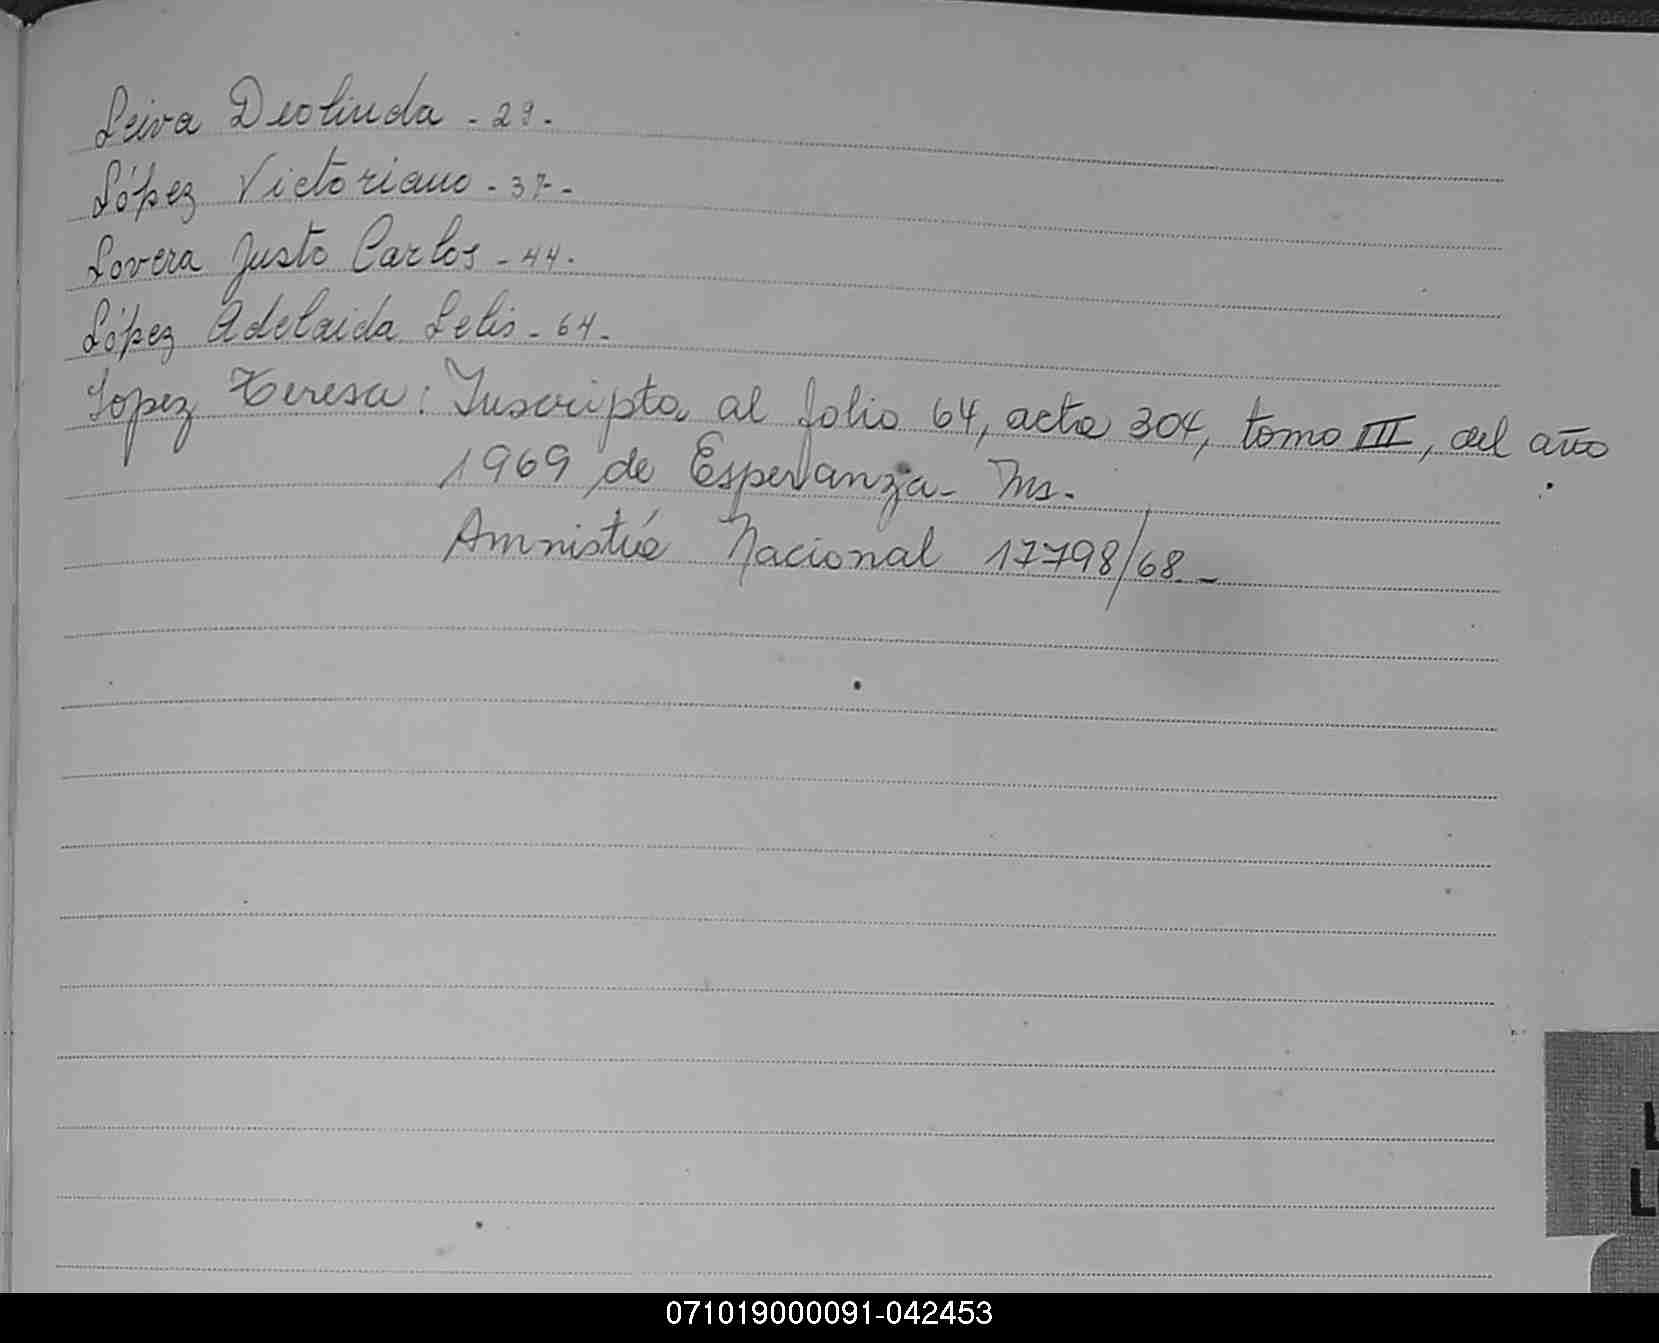 Leiva Deolinda - 29 -
López Victoriano - 37 -
Lovera Justo Carlos - 44 -
López Adelaida Lelis - 64 -
Lopez Teresa: Inscripta al folio 64, acta 304, tomo III, del año
1969 de Esperanza - Ms.
Amnistía Nacional 17798/68 -
L
L
071019000091-042453